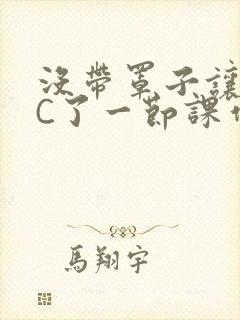 沒帶罩子讓
C了一節課作
馬翔宇